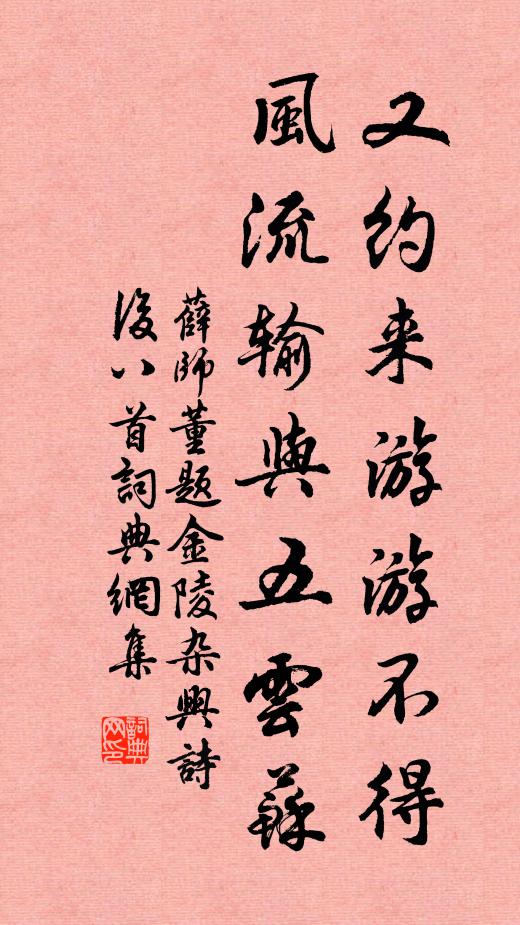 又约来游游不得
風流输與五雲蘇
薛師董题金陵杂興詩
後八首詞典網集
詞典网印